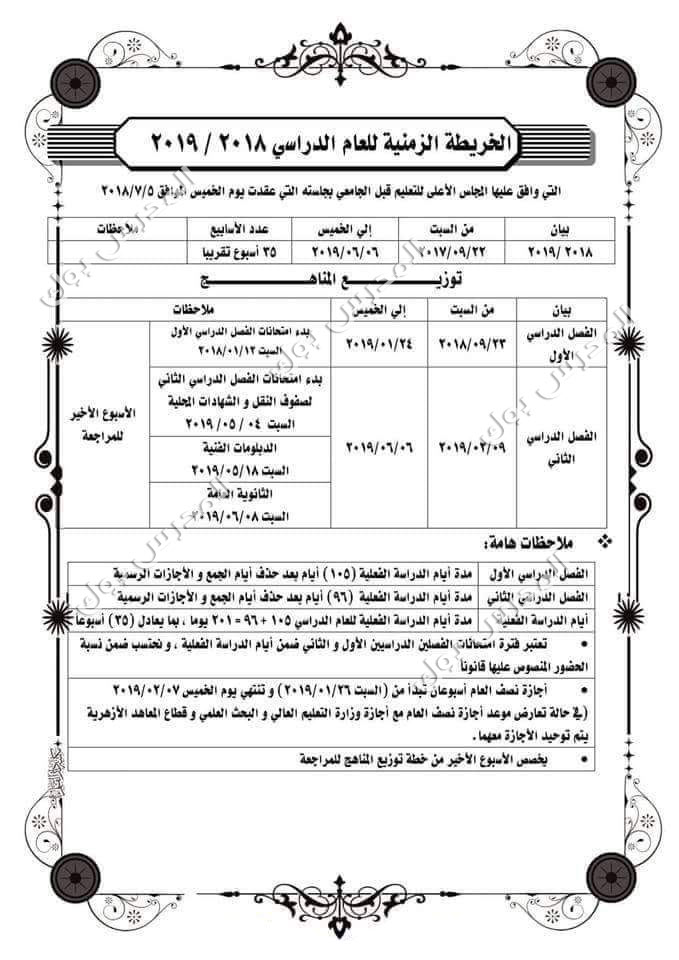 الخريطة الزمنية للعام الدراسي ٢٠١٨ / ٢٠١٩
التي وافق عليها المجلس الأعلى للتعليم قبل الجامعي بجلسته التي عقدت يوم الخميس الموافق ٢٠١٨/٧/٥
بيان من السبت إلي الخميس عدد الأسابيع ملاحظات
٢٠١٨ /٢٠١٩ ٢٠١٧/٠٩/٢٢ ٢٠١٩/٠٦/٠٦ ٣٥ أسبوع تقريبا
توزيع المناهج
بيان من السبت إلي الخميس ملاحظات
الفصل الدراسي
الأول
٢٠١٨/٠٩/٢٣
٢٠١٩/٠١/٢٤
بدء امتحانات الفصل الدراسي الأول
السبت ٢٠١٨/٠١/١٢
الفصل الدراسي
الثاني
٢٠١٩/٠٢/٠٩
٢٠١٩/٠٦/٠٦
بدء امتحانات الفصل الدراسي الثاني
لصفوف النقل و الشهادات المحلية
السبت ٠٤ /٠٥ /٢٠١٩
الدبلومات الفنية
السبت ٢٠١٩/٠٥/١٨
الثانوية العامة
السبت ٢٠١٩/٠٦/٠٨
الأسبوع الأخير
للمراجعة
❖ ملاحظات هامة:
الفصل الدراسي الأول مدة أيام الدراسة الفعلية (١٠٥) أيام بعد حذف أيام الجمع و الأجازات الرسمية
الفصل الدراسي الثاني مدة أيام الدراسة الفعلية (٩٦) أيام بعد حذف أيام الجمع و الأجازات الرسمية
أيام الدراسة الفعلية مدة أيام الدراسة الفعلية للعام الدراسي ١٠٥ + ٩٦ = ٢٠١ يوما ، بما يعادل (٣٥) أسبوعا
• تعتبر فترة امتحانات الفصلين الدراسيين الأول و الثاني ضمن أيام الدراسة الفعلية ، و نحتسب ضمن نسبة
الحضور المنصوص عليها قانوناً
• أجازة نصف العام أسبوعان تبدأ من (السبت ٢٠١٩/٠١/٢٦) و تنتهي يوم الخميس ٢٠١٩/٠٢/٠٧
(في حالة تعارض موعد أجازة نصف العام مع أجازة وزارة التعليم العالي و البحث العلمي و قطاع المعاهد الأزهرية
يتم توحيد الأجازة معهما.
• يخصص الأسبوع الأخير من خطة توزيع المناهج للمراجعة
المدرس بوك
المدرس بوك
المدرس بوك
المدرس بوك
المدرس بوك